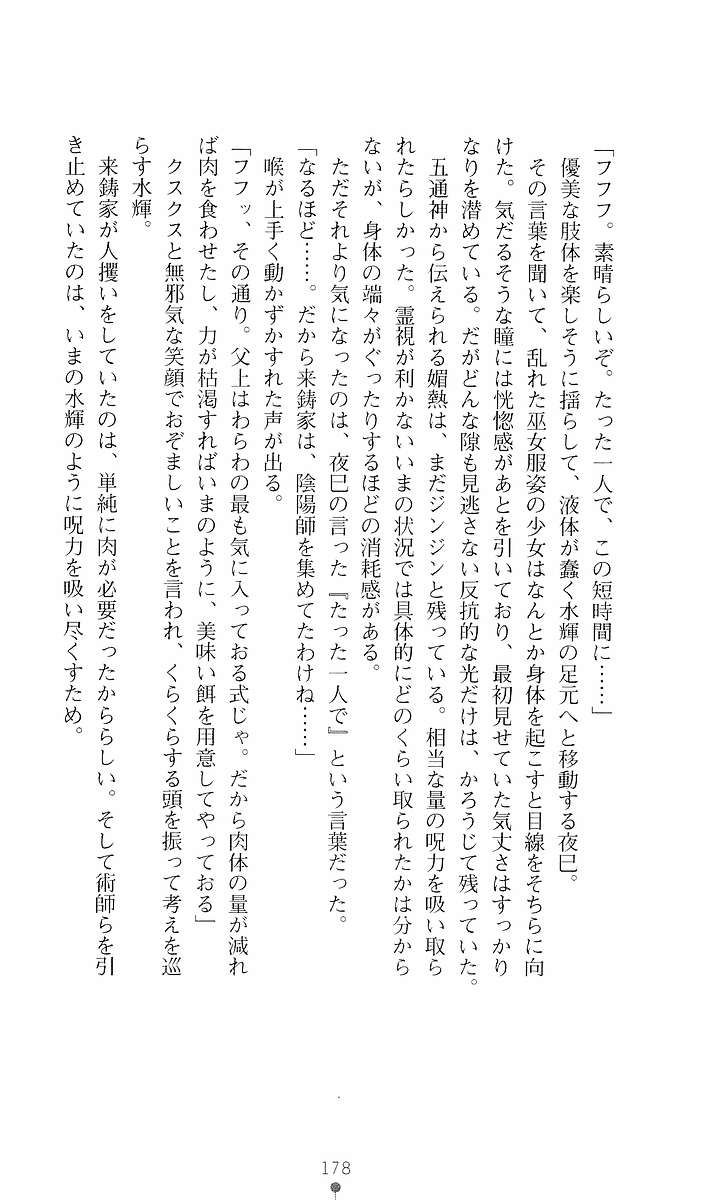 「フフフ。素晴らしいぞ。たった一人で、この短時間に……」
優美な肢体を楽しそうに揺らして、液体が蠢く水輝の足元へと移動する夜巳。
その言葉を聞いて、乱れた巫女服姿の少女はなんとか身体を起こすと目線をそちらに向
けた。気だるそうな瞳には恍惚感があとを引いており、最初見せていた気丈さはすっかり
なりを潜めている。だがどんな隙も見逃さない反抗的な光だけは、かろうじて残っていた。
五通神から伝えられる媚熱は、まだジンジンと残っている。相当な量の呪力を吸い取ら
れたらしかった。霊視が利かないいまの状況では具体的にどのくらい取られたかは分から
ないが、身体の端々がぐったりするほどの消耗感がある。
ただそれより気になったのは、夜巳の言った『たった一人で』という言葉だった。
「なるほど……。だから来鋳家は、陰陽師を集めてたわけね……」
喉が上手く動かずかすれた声が出る。
「フフッ、その通り。父上はわらわの最も気に入っておる式じゃ。だから肉体の量が減れ
ば肉を食わせたし、力が枯渇すればいまのように、美味い餌を用意してやっておる」
クスクスと無邪気な笑顔でおぞましいことを言われ、くらくらする頭を振って考えを巡
らす水輝。
来鋳家が人攫いをしていたのは、単純に肉が必要だったかららしい。そして術師らを引
き止めていたのは、いまの水輝のように呪力を吸い尽くすため。
178